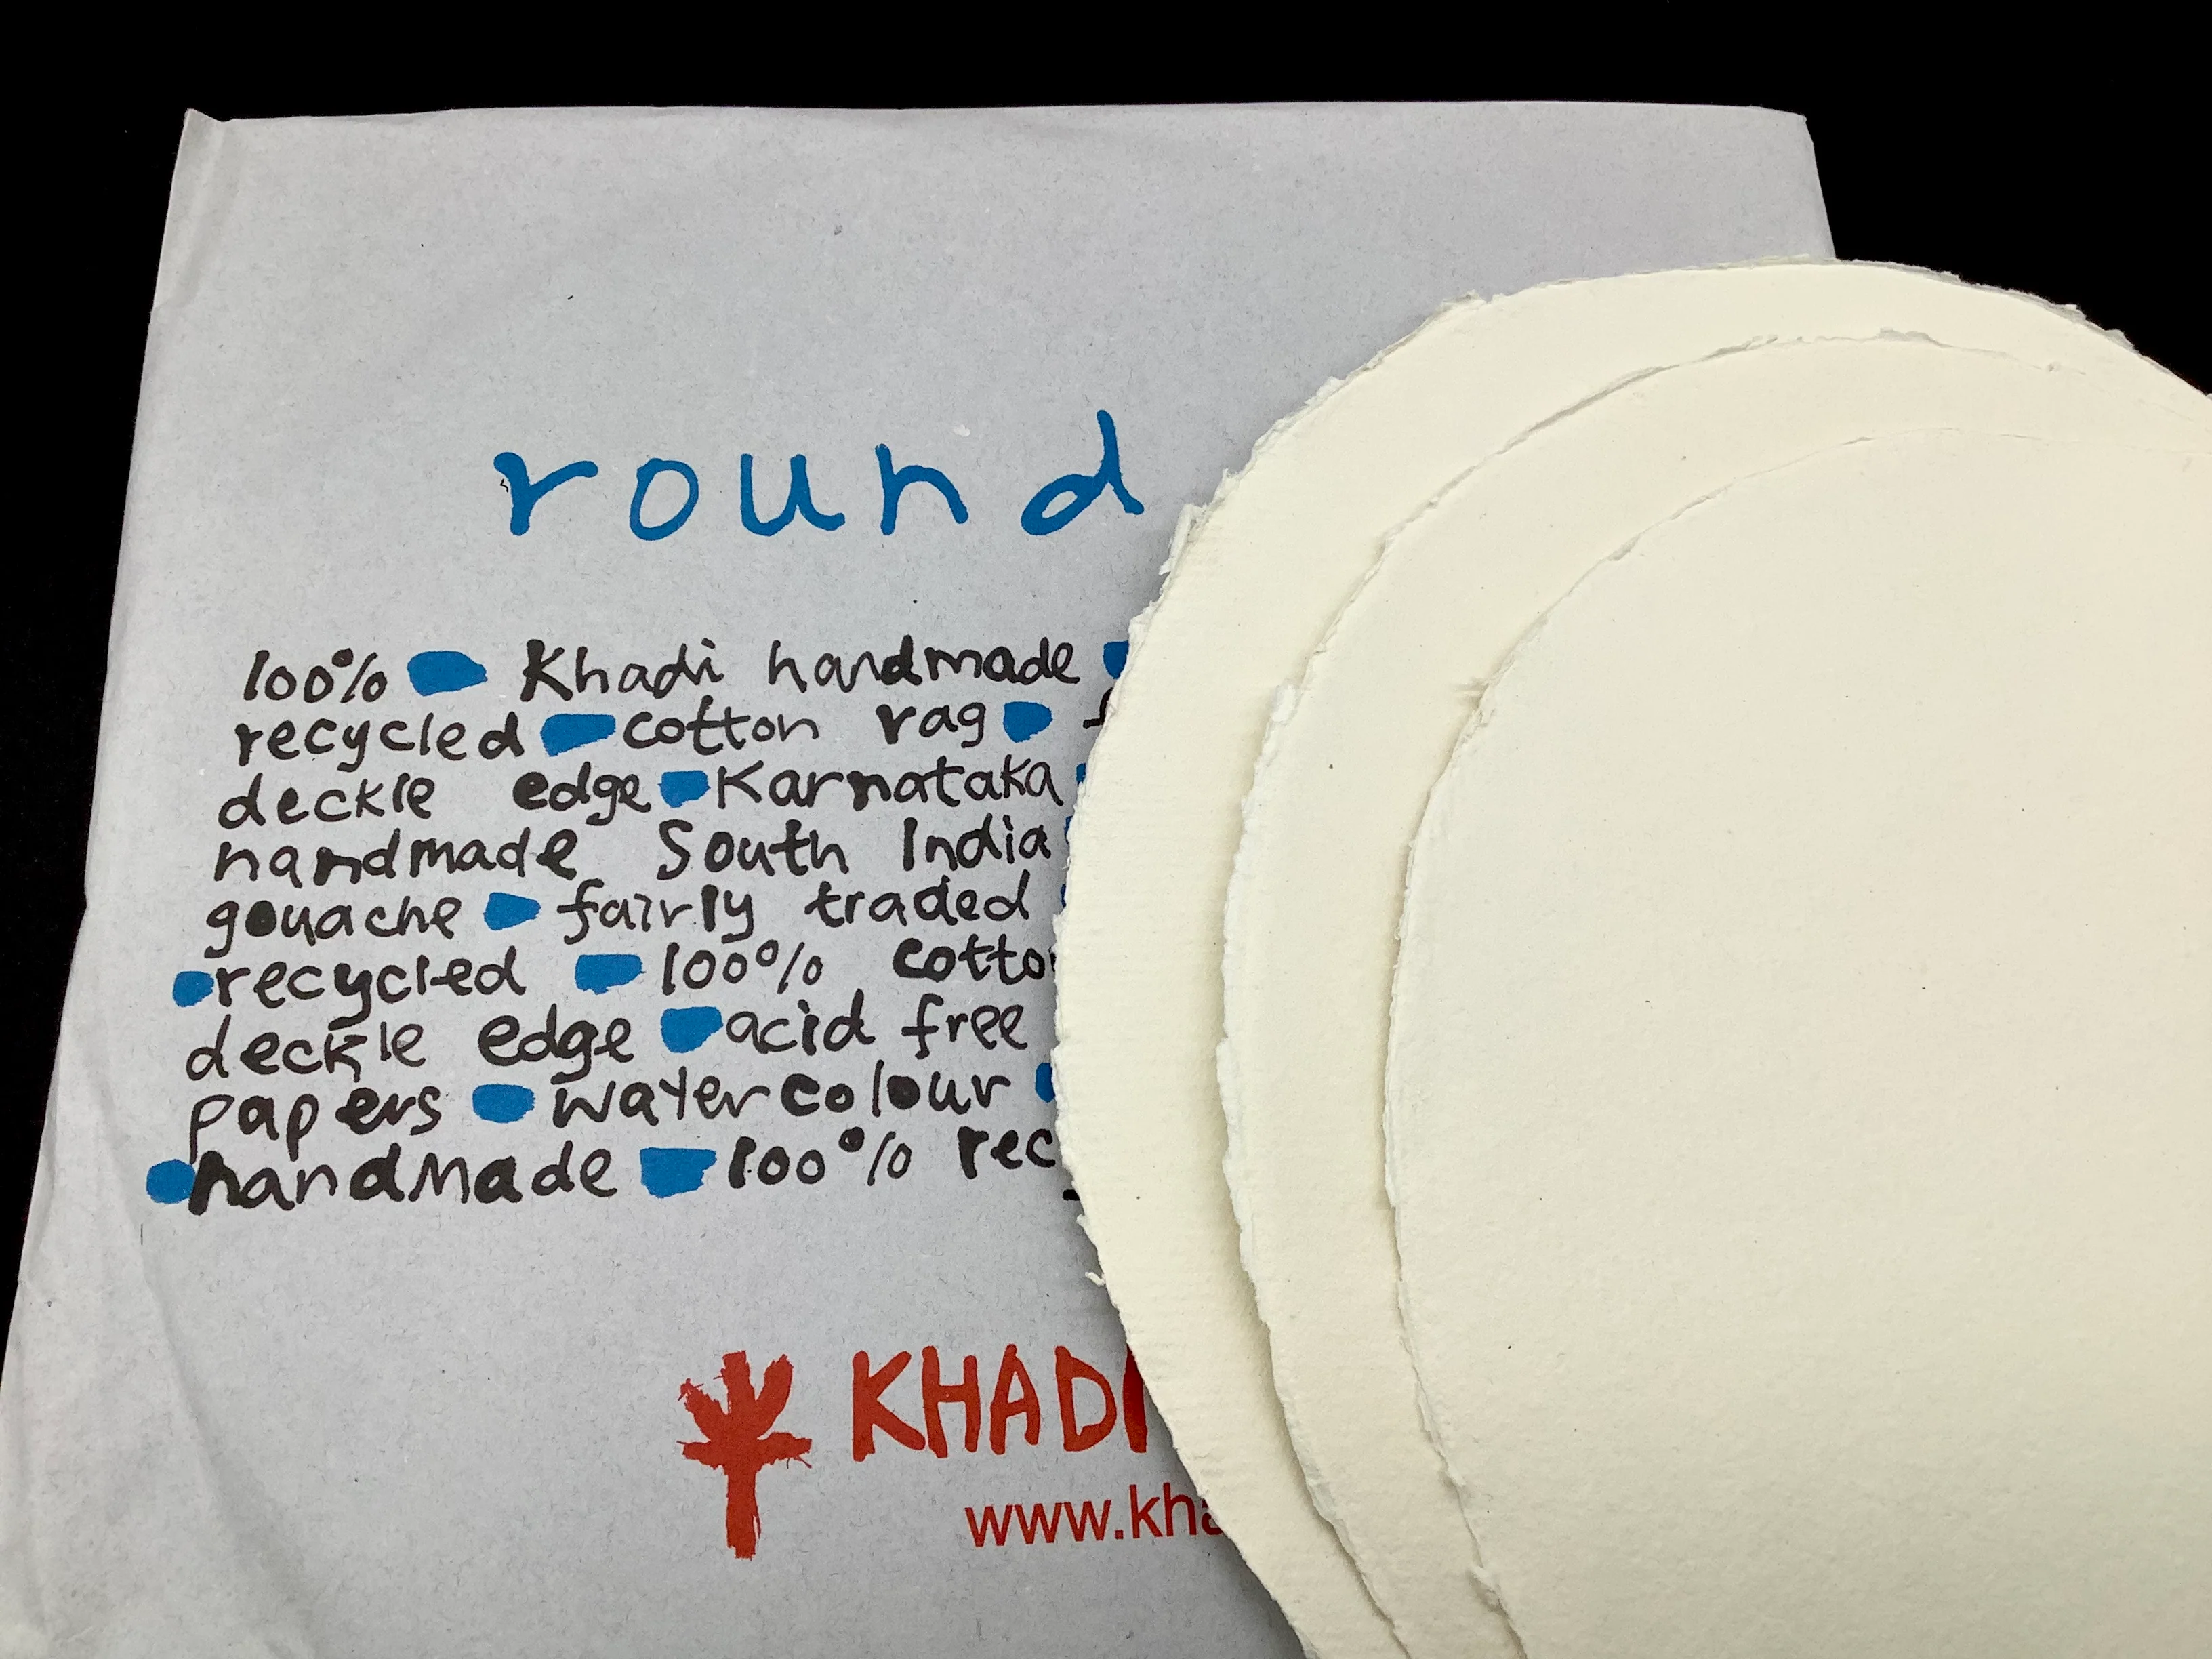 round
100% Khadi handmade
recycled cotton rag
deckle edge Karnataka
handmade South India
gouache fairly traded
recycled 100%
deckle edge acid free
papers watercolour
handmade 100%
KHADI
www.kha